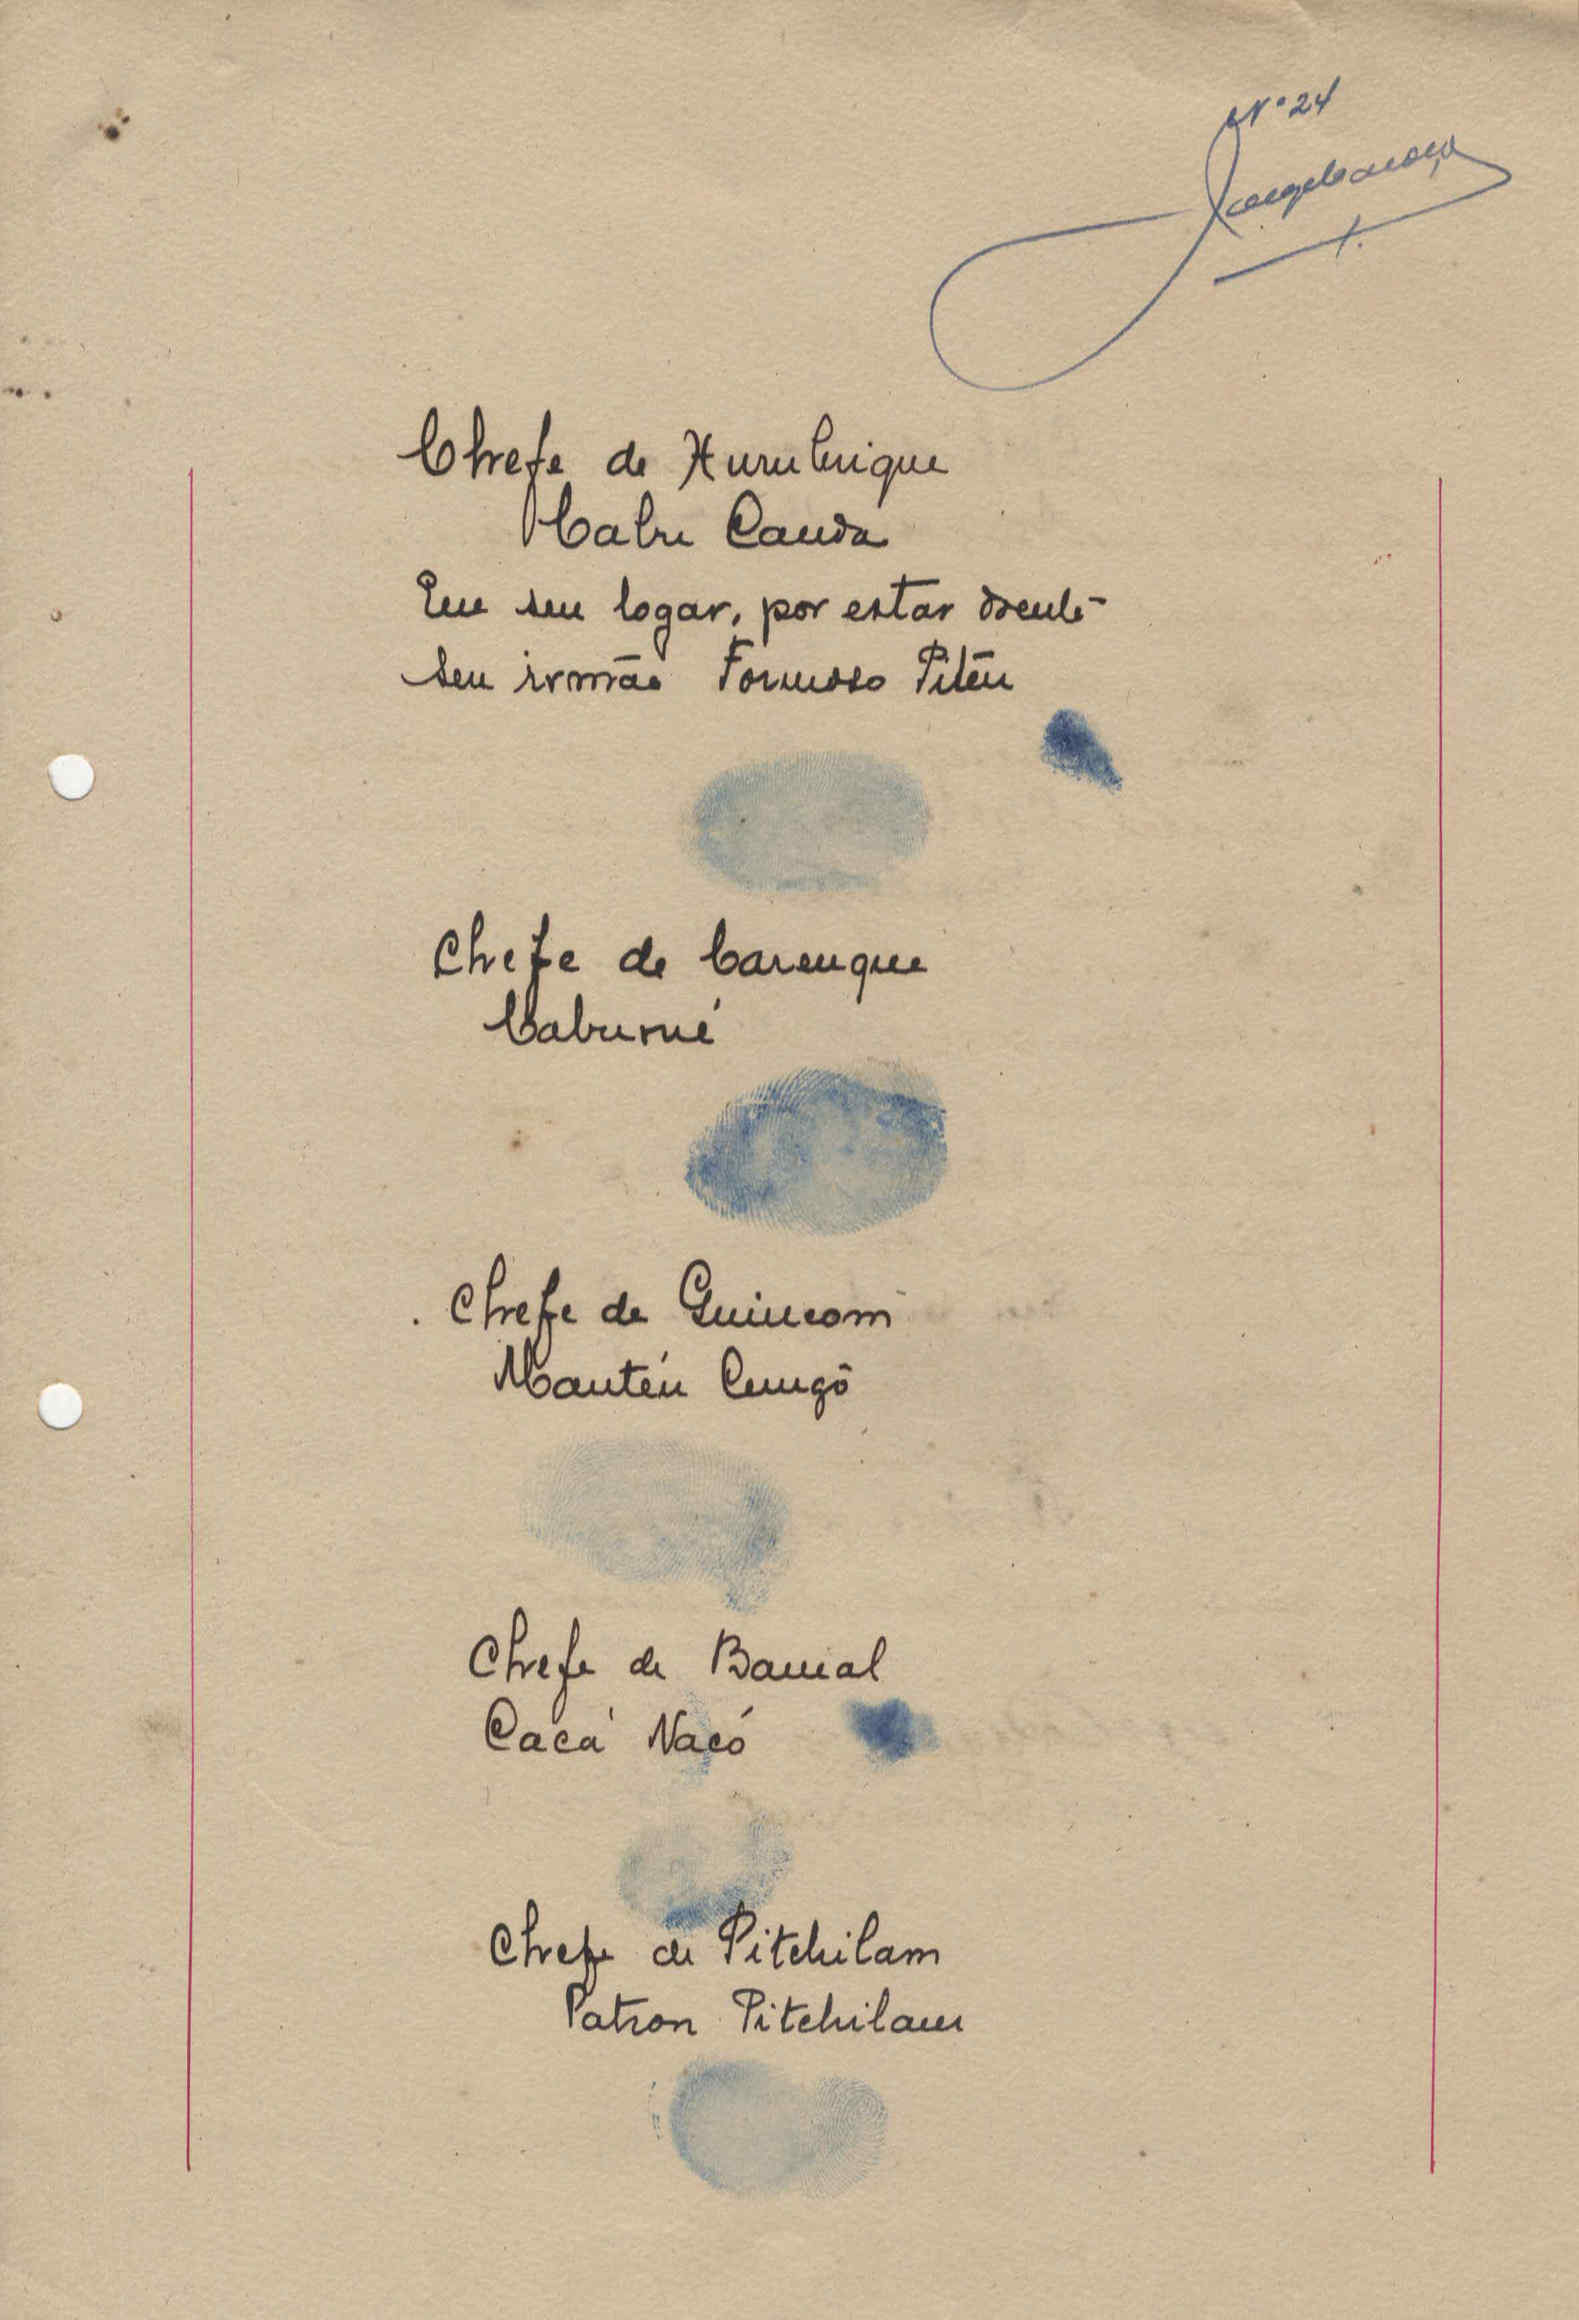 Nº 24
Chefe de
Cabu Canda
Em seu logar, por estar doente
seu irmão Formoso Pitéu
Chefe de Carenque
Caburné
Chefe de Guincom
Mantéu
Chefe de Bamal
Cacá Nacó
Chefe de Pitchilam
Patron Pitchilam